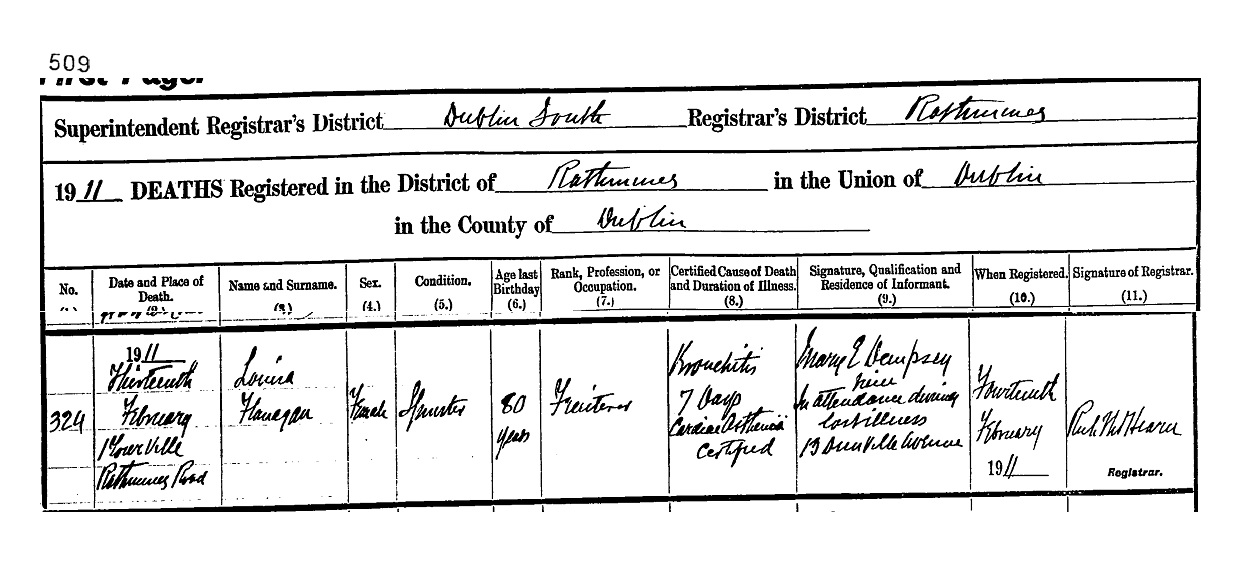 509
First Page.
Superintendent Registrar's District Dublin South Registrar's District Rathmines
1911 DEATHS Registered in the District of Rathmines in the Union of Dublin
in the County of Dublin
No. Date and Place of Death. (2.) Name and Surname. (3.) Sex. (4.) Condition. (5.) Age last Birthday (6.) Rank, Profession, or Occupation. (7.) Certified Cause of Death and Duration of Illness. (8.) Signature, Qualification and Residence of Informant. (9.) When Registered. (10.) Signature of Registrar. (11.)
324
1911
Thirteenth
February
Ville
Rathmines Road
Louisa
Flanagan
Female
Spinster
80
years
Bronchitis
7 Days
Cardiac Asthenia
Certified
Mary E Dempsey
niece
In attendance during
last illness
13 Dunville Avenue
Fourteenth
February
1911
Registrar.